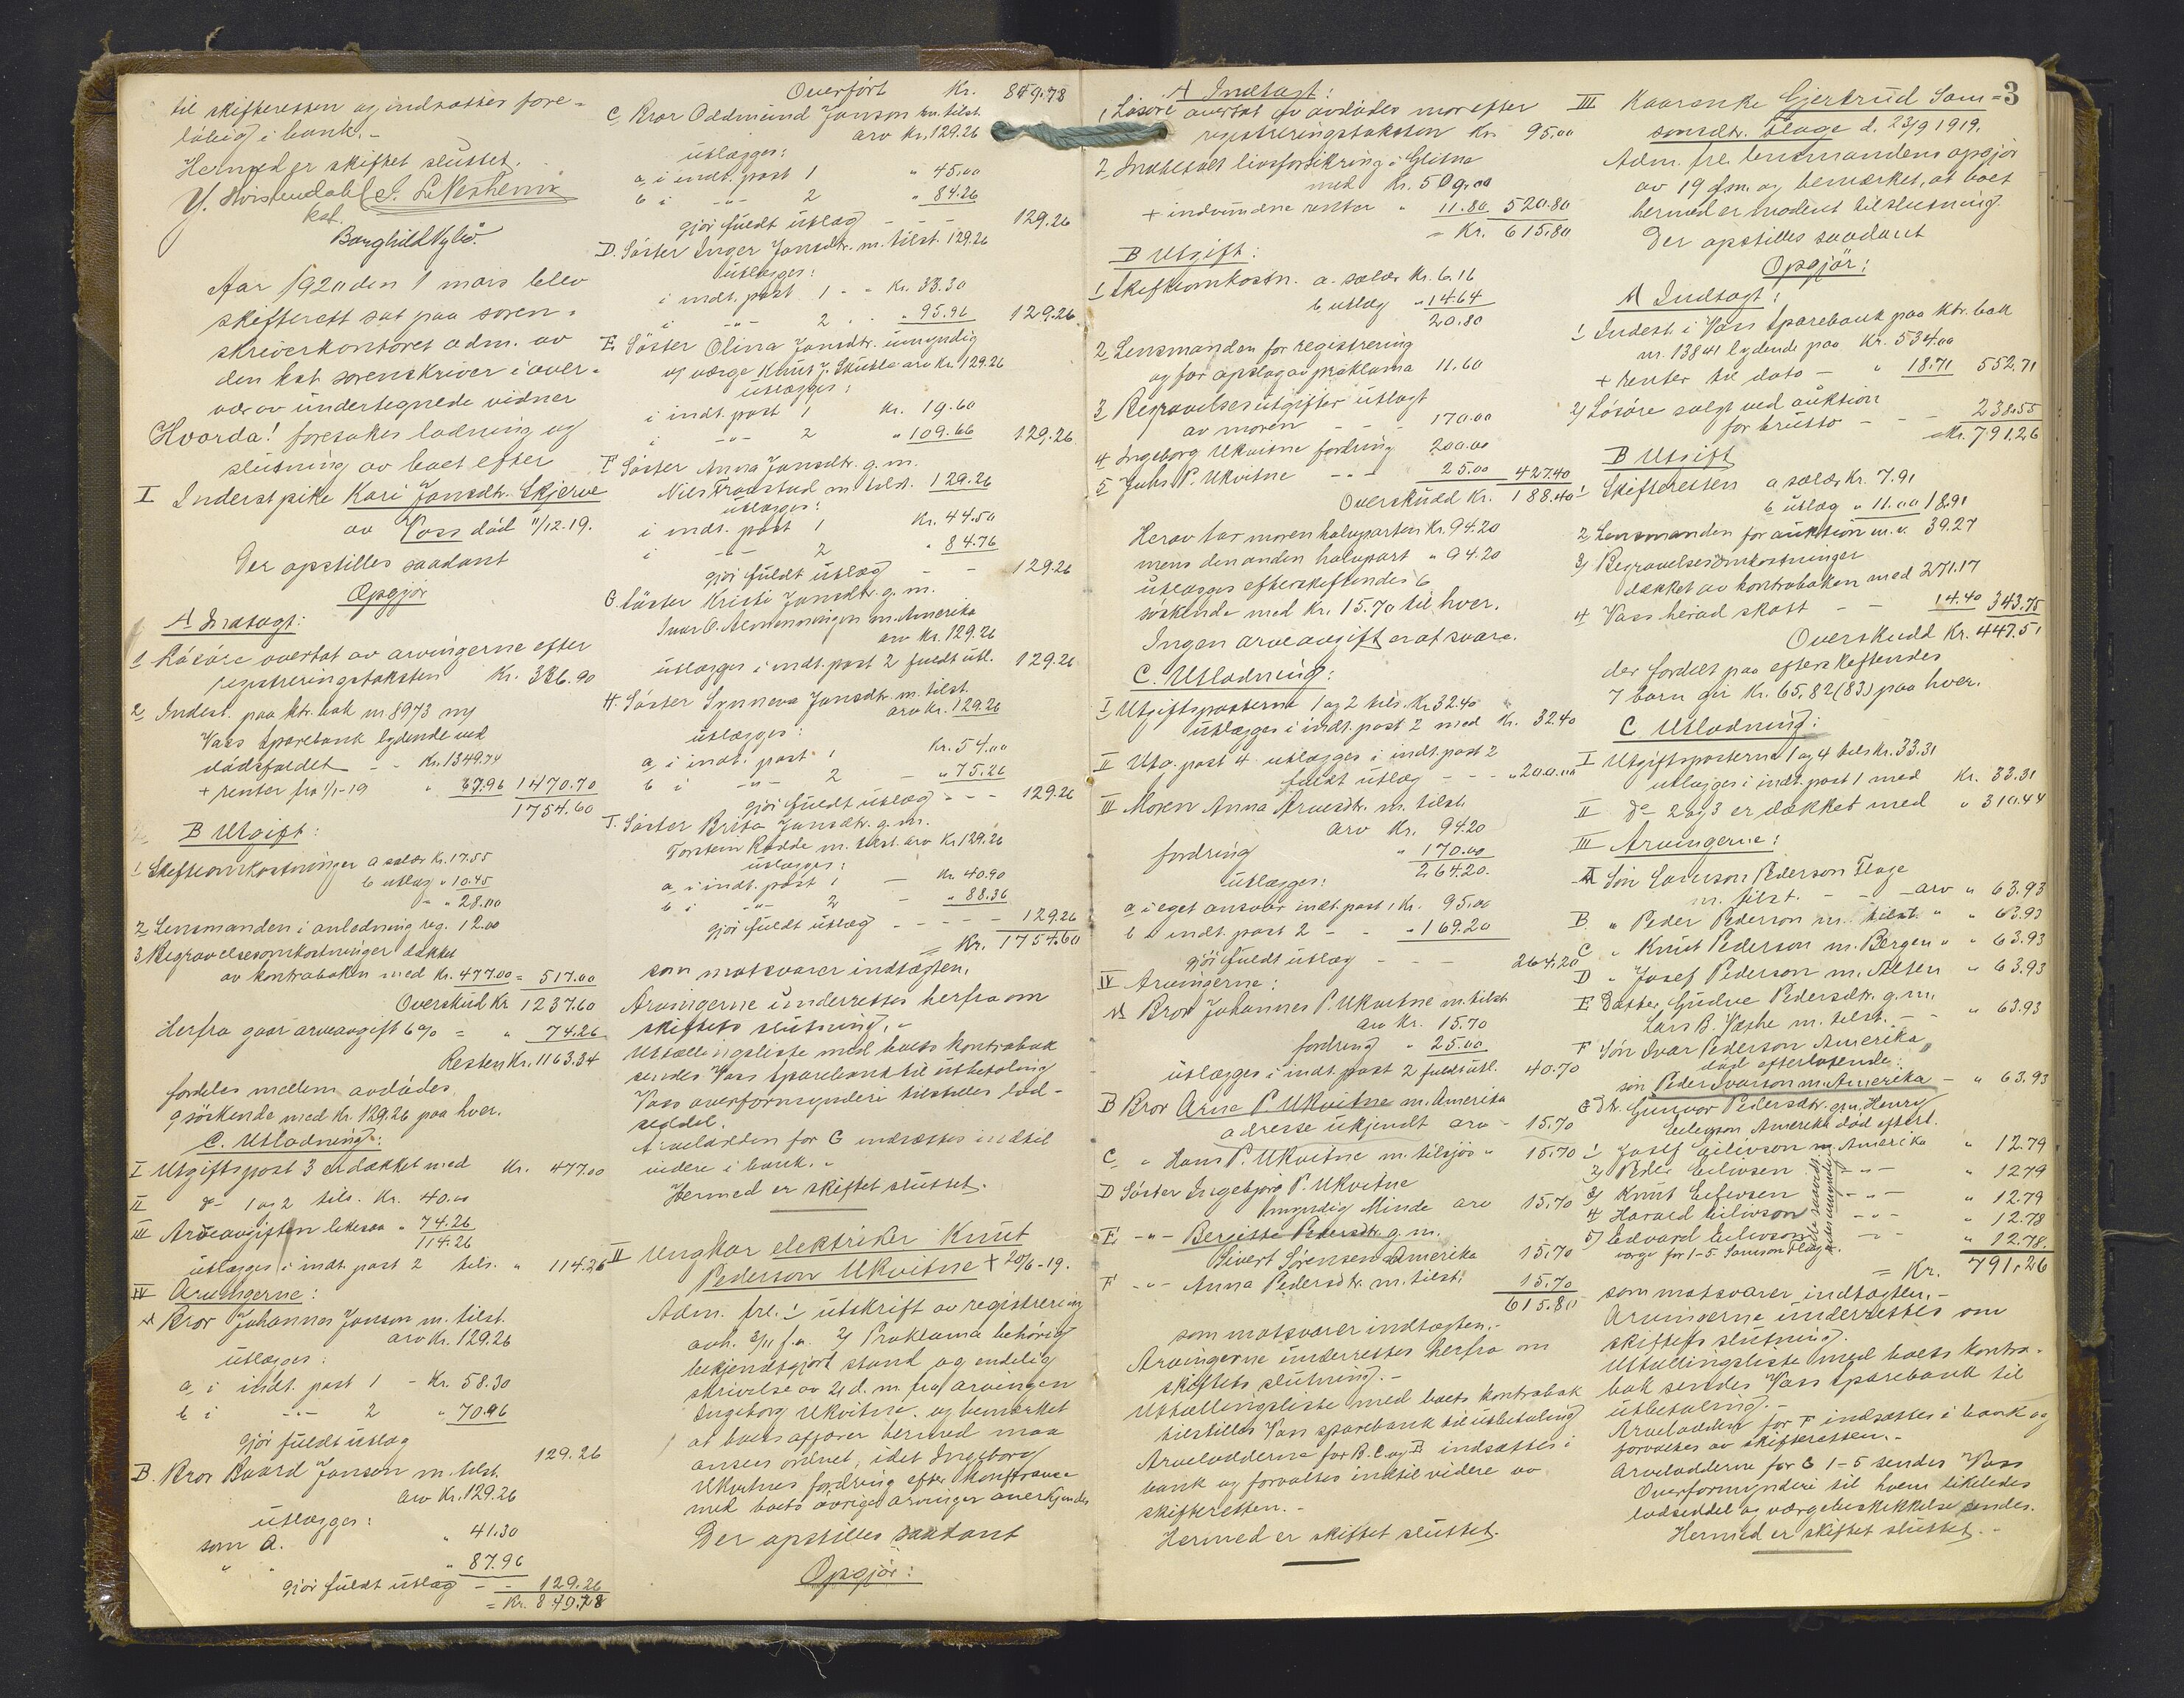 til skifteretten og indsættes fore-
løbig i bank.-
Hermed er skiftet sluttet.
Borghild Nylvi.
Aar 1920 den 1 mars blev
skifterett sat paa soren-
skriverkontoret adm. av
den kst sorenskriver i over-
vær av undertegnede vidner
Hvorda! foretokes lodning og
slutning av boet efter
I Inderst pike Kari Jonsdtr. Skjerve
av Voss død 11/12.19.
Der opstilles saadant
Opgjør
A Indtægt:
1 Løsøre overtat av arvingerne efter
registreringstaksten Kr. 386.90
2 Indest. paa ktr. bok nr 8973 ny
Voss sparebank lydende ved
dødsfaldet - - Kr. 1349.74
+ renter fra 1/1-19 " 67.96 1470.70
1754.60
B Utgift:
1 Skifteomkostninger a salær Kr. 17.55
b utlæg " 10.45
" 28.00
2 Lensmanden i anledning reg. 12.00
3 Begravelsesomkostninger dækket
av kontraboken med Kr. 477.00 = 517.00
Overskud Kr 1237.60
Herfra gaar arveavgift 6% = " 74.26
Resten Kr. 1163.34
fordeles mellem avdødes
9 søskende med Kr. 129.26 paa hver.
C. Utlodning:
I Utgiftspost 3 er dækket med Kr. 477.00
II do 1 og 2 tils. Kr. 40.00
III Arveavgiften likesaa " 74.26
114.26
utlægges i indt. post 2 tils. " 114.26
IV Arvingerne:
A Bror Johannes Jonson m. tilst.
arv Kr. 129.26
utlægges:
a i indt. post 1 - Kr. 58.30
b i -"- 2 " 70.96
gjør fuldt utlæg 129.26
B. Bror Baard Jonson m. tilst.
arv Kr. 129.26
utlægges:
som a. " 41.30
" " " 87.96
gjør fuldt utlæg - - 129.26
= Kr. 849.78
Overført Kr. 849.78
C Bror Oddmund Jonson m. tilst.
arv Kr. 129.26
utlægges:
a i indt. post 1 " 45.00
b i -"- 2 " 84.26
gjør fuldt utlæg - - - 129.26
D. Søster Inger Jonsdtr. m. tilst. 129.26
utlægges:
i indt. post 1 - " Kr. 33.30
i -"- 2 - " 95.96 129.26
E Søster Olina Jonsdtr. umyndig
og værge Knut J. Skutle arv Kr. 129.26
utlægges:
i indt. post 1 Kr. 19.60
i -"- 2 " 109.66 129.26
F Søster Anna Jonsdtr. g. m.
Nils Fraustad m tilst. 129.26
utlægges:
i indt. post 1 Kr. 44.50
i -"- 2 " 84.76
gjør fuldt utlæg - - 129.26
G. Søster Kristi Jonsdtr. g. m.
m. Amerika
arv Kr. 129.26
utlægges i indt. post 2 fuldt utl. 129.26
H. Søster Synneva Jonsdtr. m. tilst.
arv Kr. 129.26
utlægges:
a i indt. post 1 Kr. 54.00
b i -"- 2 - " 75.26
gjør fuldt utlæg - - - 129.26
J. Søster Brita Jonsdtr. g. m.
Torstein Rødde m. tilst. arv Kr. 129.26
utlægges:
a i indt. post 1 - Kr 40.90
b i -"- 2 - " 88.36
gjør fuldt utlæg - - - - 129.26
= Kr. 1754.60
som motsvarer indtægten.
Arvingerne underrettes herfra om
skiftets slutning.-
Utbetalingsliste med boets kontrabok
sendes Voss sparebank til utbetaling
Voss overformynderi tilstilles lod-
seddel.
Arvelodden for G indsættes indtil
videre i bank.-
Hermed er skiftet sluttet.
II Ungkar elektriker Knut
Pederson Ukvitne + 20/6-19.
Adm. frl. 1/ utskrift av registrering
avh. 3/11 f.a. 2/ Proklama behørig
bekjendtgjort stand og endelig
skrivelse av 2/ d. m. fra arvingen
Ingeborg Ukvitne. og bemerket
at boets affærer hermed maa
ansees ordnet, idet Ingeborg
Ukvitnes fordring efter konferanse
med boets øvrige arvinger anerkjendes
Der opstilles saadant
Opgjør:
3
A Indtægt:
1 Løsøre overtat av avdødes mor efter
registreringstaksten Kr. 95.00
2 Indbetalt livsforsikring i Glitne
med Kr. 509.00
+ indvundne renter " 11.80 520.80
= Kr. 615.80
B Utgift:
1 Skifteomkostn. a. salær Kr. 6.16
b utlæg " 14.64
20.80
2 Lensmanden for registrering
og for opslag av proklama 11.60
3 Begravelsesutgifter utlagt
av moren - - - 170.00
4 Ingeborg Ukvitne fordring 200.00
5 Johs P. Ukvitne - " - 25.00 427.40
Overskudd Kr. 188.40
Herav tar moren halvparten Kr. 94.20
mens den anden halvpart " 94.20
utlægges efterskeftendes 6
søskende med Kr. 15.70 til hver.
Ingen arveavgift er at svare.
C. Utlodning:
I Utgiftsposterne 1 og 2 tils. Kr 32.40
utlægges i indt. post 2 med Kr. 32.40
II Utg. post 4 utlægges i indt. post 2
fuldt utlæg - - - " 200.00
III Moren Anna Arnesdtr. m. tilst.
arv Kr. 94.20
fordring " 170.00
264.20.
utlægges:
a i eget ansvar indt. post 1 Kr. 95.00
b i indt. post 2 - - " 169.20
gjør fuldt utlæg - - - 264.20
IV Arvingerne:
A Bror Johannes P. Ukvitne m. tilst.
arv Kr. 15.70
fordring " 25.00
utlægges i indt. post 2 fuldt utl. 40.70
B Bror Arne P. Ukvitne m. Amerika
adresse ukjendt arv - 15.70
C " Hans P. Ukvitne m. tilsjøs " 15.70
D Søster Ingebjørg P. Ukvitne
umyndig Minde arv 15.70
E -"- Bergitte Pedersdtr. g. m.
Sivert Sørensen Amerika 15.70
F -"- Anna Pedersdtr. m. tilst. 15.70
615.80
som motsvarer indtægten.-
Arvingerne underrettes herfra om
skiftets slutning.-
Utbetallingsliste med boets kontrabok
tilstilles Voss sparebank til utbetaling
Arvelodderne for B. C og E indsættes i
bank og forvaltes indtil videre av
skifteretten.-
Hermed er skiftet sluttet.
III Kaarenke Gjertrud Sam-
sonsdtr. Flage d. 23/9 1919.
Adm. frl. lensmandens opgjør
av 19 f.m. og bemerket, at boet
hermed er modent til slutning.
Der opstilles saadant
Opgjør:
A Indtægt:
1 Indest. i Voss Sparebank paa ktr. bok
nr. 13841 lydende paa Kr. 534.00
+ renter til dato - " 18.71 552.71
2) Løsøre solgt ved auktion
for brutto - - - 238.55
= Kr. 791.26
B Utgift
1 Skifteretten a salær Kr. 7.91
b utlæg " 11.00 18.91
2 Lensmanden for auktion m.v. 39.27
3) Begravelsesomkostninger
dækket av kontraboken med 271.17
4 Voss herad skatt - - 14.40 343.75
Overskudd Kr. 447.51
der fordelt paa efterskeftendes
7 barn gir Kr. 65,82 (83) paa hver.
C Utlodning:
I Utgiftsposterne 1 og 4 tils Kr. 33.31
utlægges i indt. post 1 med Kr. 33.31
II do 2 og 3 er dækket med " 310.44
III Arvingerne:
A Søn Samson Pederson Flage
m. tilst. - - - arv " 63.93
B. " Peder Pederson m. tilst. " " 63.93
C " Knut Pederson m. Bergen " " 63.93
D " Josef Pederson m. Alten " 63.93
E Datter Gudve Pedersdtr. g. m.
Lars B. m. tilst. - - " 63.93
F Søn Ivar Pederson Amerika
død efterlatende:
søn Peder Ivarson m. Amerika - " 63.93
G Dtr. Gunvor Pedersdtr. g. m. Henry
Eilevson Amerika død efterl.
1 Josef Eilivson m. Amerika " 12.79
2) Peder Eilivsen -"- " 12.79
3) Knut Eilivsen -"- " 12.79
4 Harald Eilivson -"- " 12.78
5) Edvard Eilivson -"- " 12.78.
værge for 1-5 Samson Flage.
= Kr. 791.26
som motsvarer indtægten.-
Arvingerne underrettes om
skiftets slutning.
Utbetallingsliste med boets kontra-
bok sendes Voss sparebank til
utbetaling.-
Arvelodden for F indsættes i bank og
forvaltes av skifteretten.-
Arvelodderne for G 1-5 sendes Voss
Overformynderi til hvem likeledes
lodseddel og værgebeskikkelse sendes.
Hermed er skiftet sluttet.-